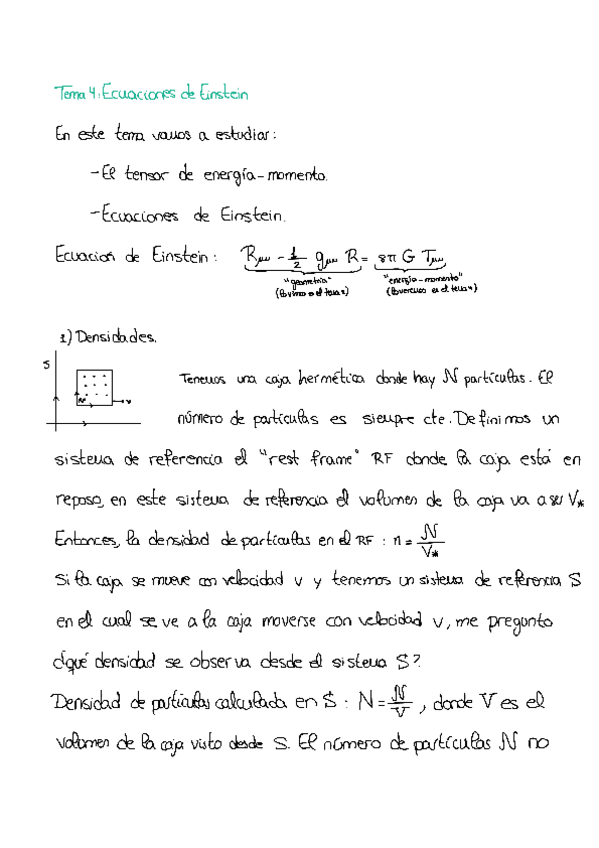 Tema 4: Ecuaciones de Einstein
En este tema vamos a estudiar:
-El tensor de energía-momento.
-Ecuaciones de Einstein.
Ecuacion de Einstein: Rμν - 1/2 gμν R = 8π G Tμν
"geometria" "energía-momento"
S
RF v
1) Densidades.
Tenemos una caja hermética donde hay N partículas. El
número de partículas es siempre cte. Definimos un
sistema de referencia el "rest frame" RF donde la caja está en
reposo, en este sistema de referencia el volumen de la caja va a ser V*
Entonces, la densidad de partículas en el RF : n = N/V*
Si la caja se mueve con velocidad v y tenemos un sistema de referencia S
en el cual se ve a la caja moverse con velocidad v, me pregunto
¿qué densidad se observa desde el sistema S?
Densidad de partículas calculada en S : N = N/V, donde V es el
volumen de la caja visto desde S. El número de partículas N no